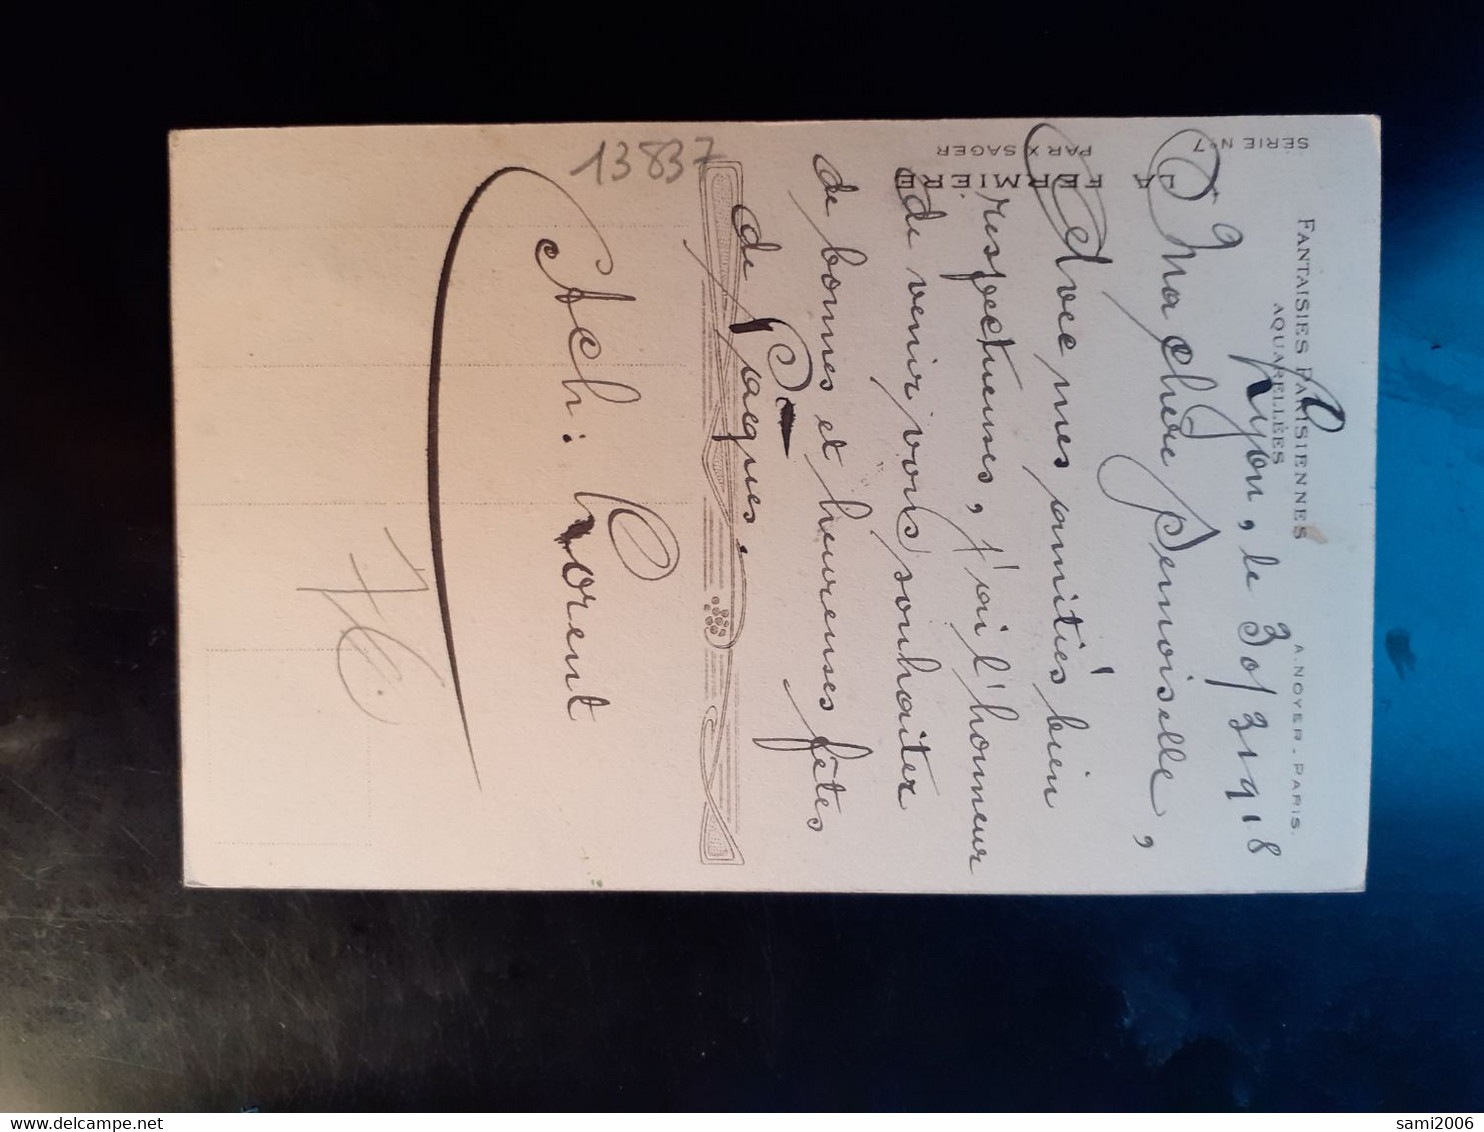 FANTAISIES PARISIENNES
AQUARELLÉES
A. NOYER - PARIS.
SERIE N° 7
LA FERMIÈRE
PAR X SAGER
Lyon, le 30/3 1918
Ma chère Demoiselle,
Avec mes amitiés bien
respectueuses, j'ai l'honneur
de venir vous souhaiter
de bonnes et heureuses fêtes
de Pâcques.
Ach: Lorent
13837
sami2006